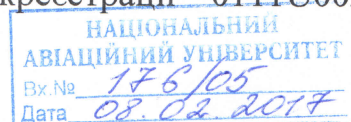 НАЦІОНАЛЬНИЙ
АВІАЦІЙНИЙ УНІВЕРСИТЕТ
Вх.№ 176/05
Дата 08.02.2017